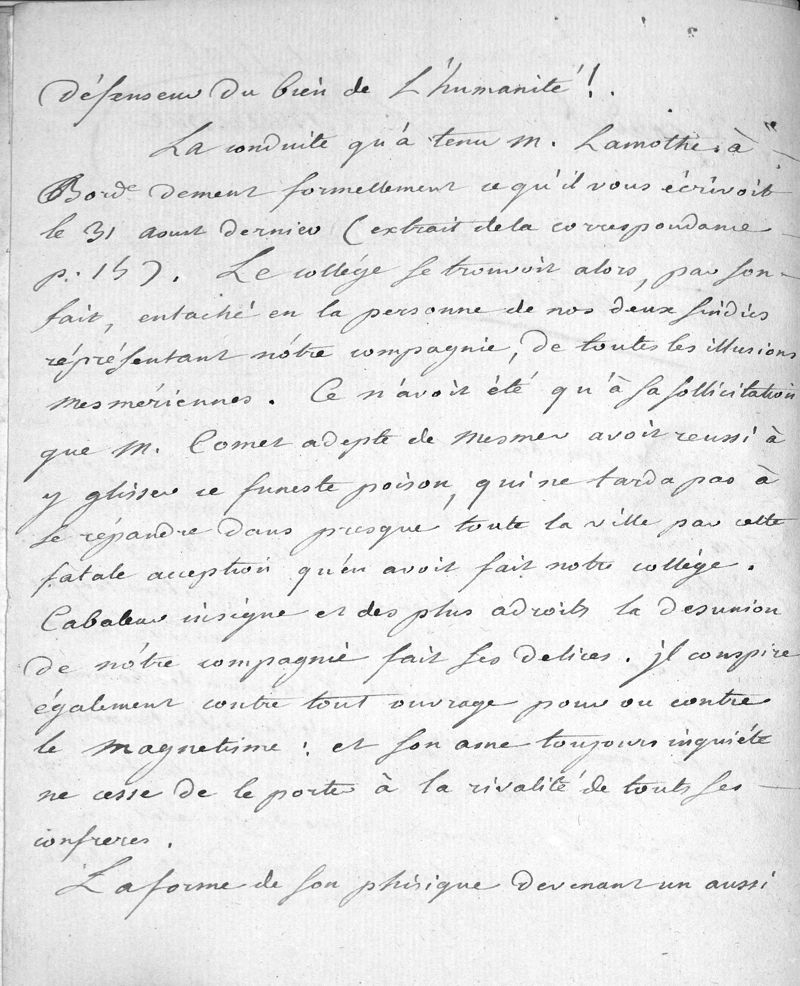 défenseur du bien de L'humanité!.
La conduite qu'à tenu m. Lamothe à
Borde dement formellement ce qu'il vous écrivoit
le 31 aoust dernier (extrait dela correspondance
p. 15). Le collége se trouvoit alors, par son
fait, entaché en la personne de nos deux sindics
réprésentant nôtre compagnie, de toutes les illusions
mesmériennes. Ce n'avoit été qu'à sa sollicitation
que M. Comet adepte de Mesmer avoit reussi à
y glisser ce funeste poison, qui ne tarda pas à
se répandre dans presque toute la ville par cette
fatale acception qu'en avoit fait notre collége.
Cabaleur insigne et des plus adroits la desunion
de nôtre compagnie fait ses delices. jl conspire
également contre tout ouvrage pour ou contre
le magnetisme: et son ame toujours inquiéte
ne cesse de le porter à la rivalité de touts ses
confreres.
La forme de son phisique devenant un aussi